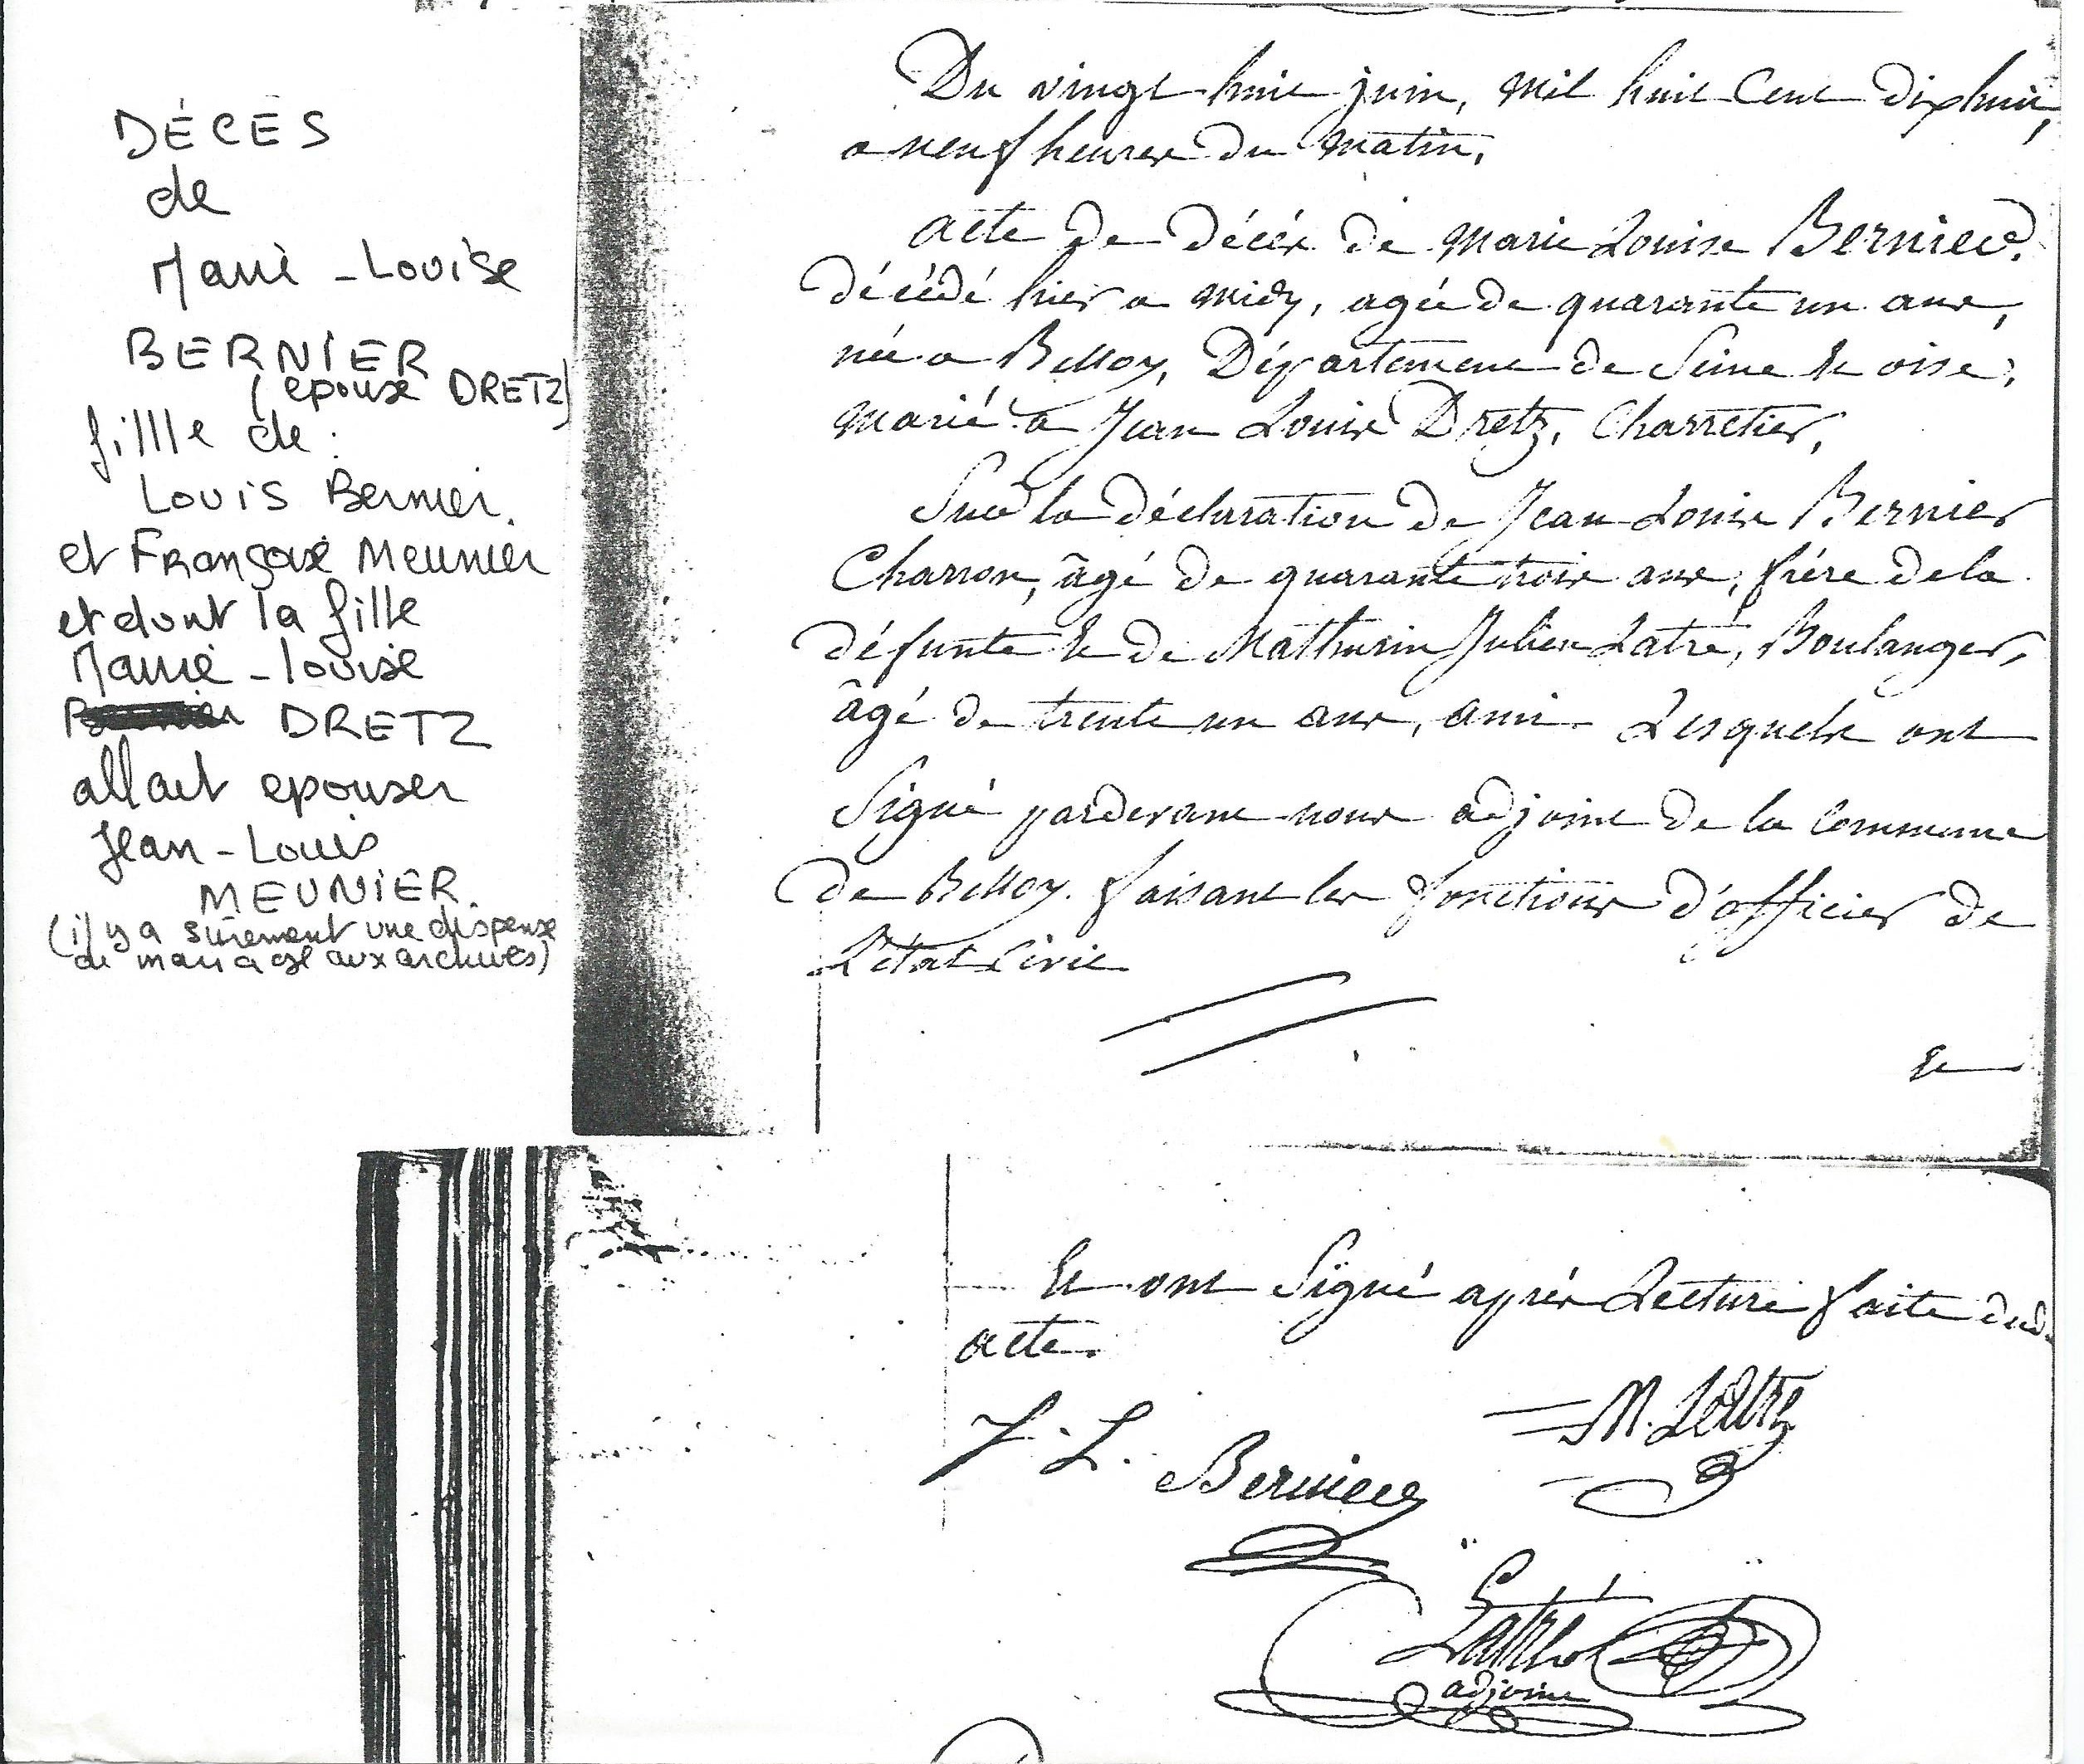 DÉCÈS
de
Marie-Louise
BERNIER
(epouse DRETZ)
fillle de :
Louis Bernier.
et Françoise Meunier
et dont la fille
Marie-louise
DRETZ
allait epouser
Jean-Louis
MEUNIER.
(il y a sûrement une dispense
de mariage aux archives)
Du vingt huit juin, mil huit Cent dixhuit,
a neuf heures du matin,
acte de décés de Marie Louise Bernier.
décédé hier a midy, agée de quarante un ans,
née a Belloy, Département de Seine et oise,
marié a Jean Louis Dretz, Charretier,
Sur la déclaration de Jean Louis Bernier
Charron, âgé de quarante trois ans, frére dela
défunte et de Mathurin Julien Latré, Boulanger,
âgé de trente un ans, ami. Lesquels ont
Signé pardevant nous adjoint de la commune
de Belloy. faisant les fonctions d'officier de
L'état Civil
Et
Et ont Signé aprés Lecture faite dud.
acte.
J. L. Bernier
M. Latré
Latré
adjoint